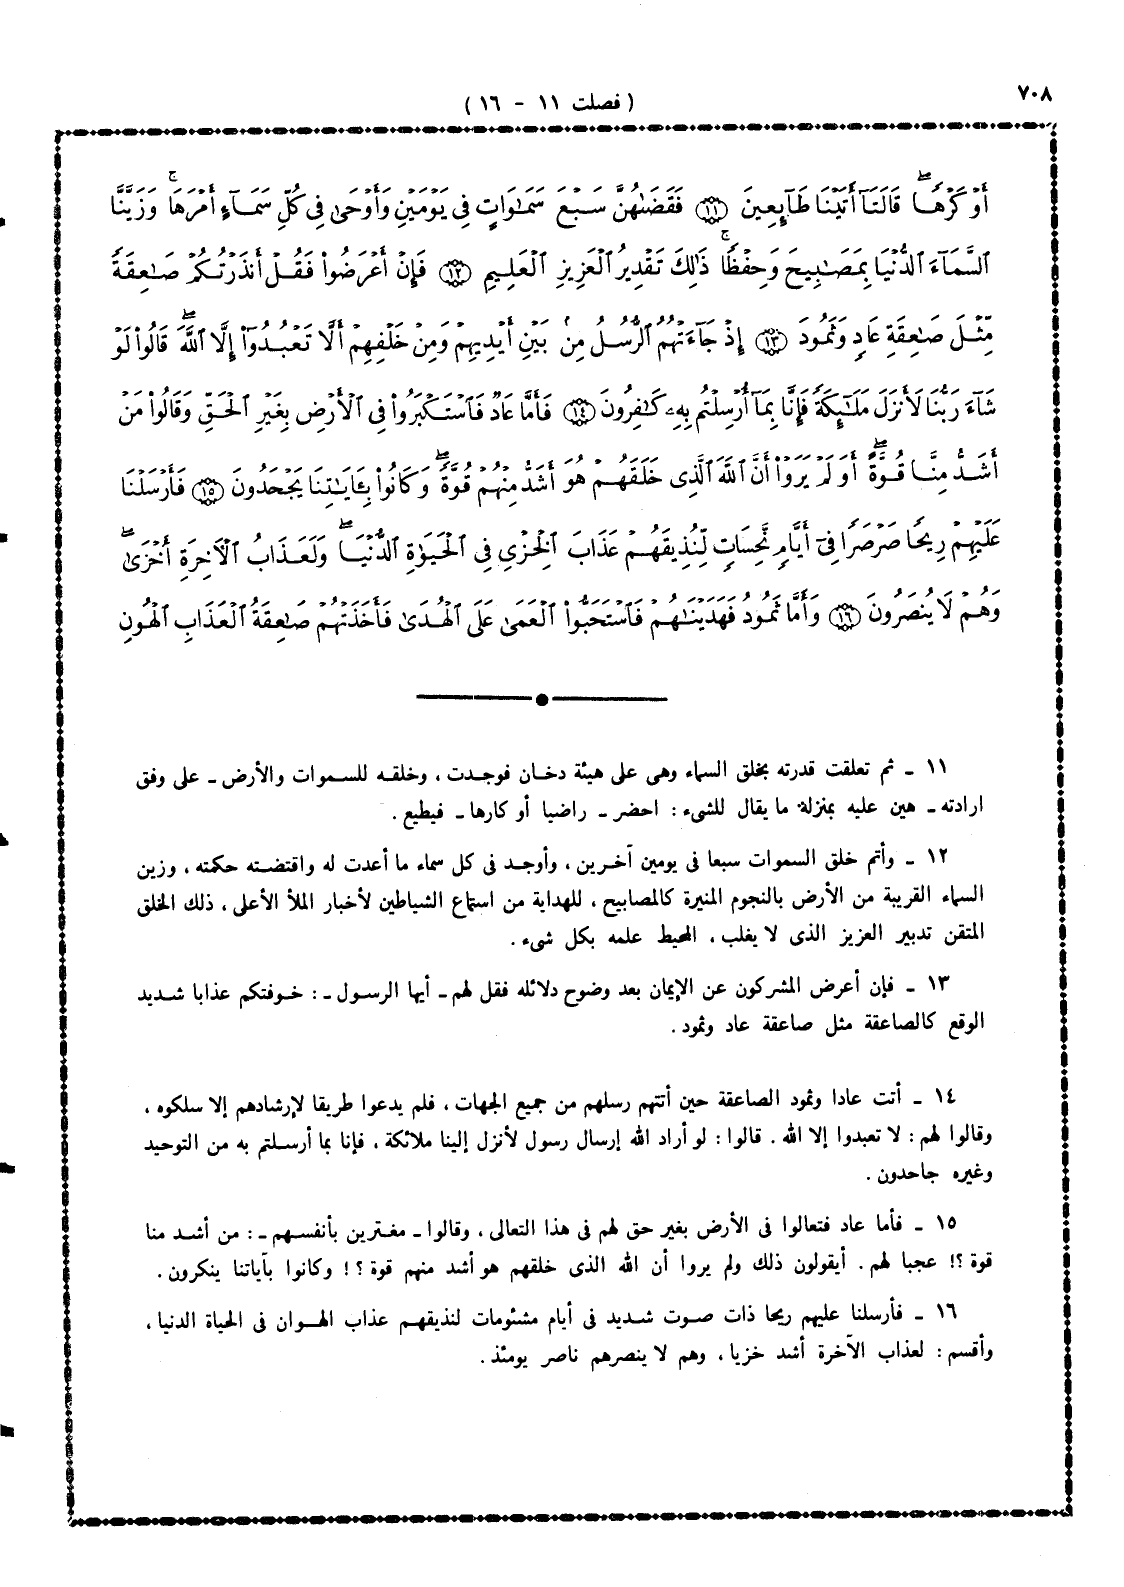 ٧٠٨
( فصلت ١١ - ١٦ )
أَوْ كَرْهًاۖ قَالَتَآ أَتَيْنَا طَآئِعِينَ ١١ فَقَضَىٰهُنَّ سَبْعَ سَمَٰوَاتٍ فِى يَوْمَيْنِ وَأَوْحَىٰ فِى كُلِّ سَمَآءٍ أَمْرَهَاۚ وَزَيَّنَّا
ٱلسَّمَآءَ ٱلدُّنْيَا بِمَصَٰبِيحَ وَحِفْظًاۚ ذَٰلِكَ تَقْدِيرُ ٱلْعَزِيزِ ٱلْعَلِيمِ ١٢ فَإِنْ أَعْرَضُوا۟ فَقُلْ أَنذَرْتُكُمْ صَٰعِقَةً
مِّثْلَ صَٰعِقَةِ عَادٍ وَثَمُودَ ١٣ إِذْ جَآءَتْهُمُ ٱلرُّسُلُ مِنۢ بَيْنِ أَيْدِيهِمْ وَمِنْ خَلْفِهِمْ أَلَّا تَعْبُدُوٓا۟ إِلَّا ٱللَّهَۖ قَالُوا۟ لَوْ
شَآءَ رَبُّنَا لَأَنزَلَ مَلَٰٓئِكَةً فَإِنَّا بِمَآ أُرْسِلْتُم بِهِۦ كَٰفِرُونَ ١٤ فَأَمَّا عَادٌ فَٱسْتَكْبَرُوا۟ فِى ٱلْأَرْضِ بِغَيْرِ ٱلْحَقِّ وَقَالُوا۟ مَنْ
أَشَدُّ مِنَّا قُوَّةًۖ أَوَلَمْ يَرَوْا۟ أَنَّ ٱللَّهَ ٱلَّذِى خَلَقَهُمْ هُوَ أَشَدُّ مِنْهُمْ قُوَّةًۖ وَكَانُوا۟ بِـَٔايَٰتِنَا يَجْحَدُونَ ١٥ فَأَرْسَلْنَا
عَلَيْهِمْ رِيحًا صَرْصَرًا فِىٓ أَيَّامٍ نَّحِسَاتٍ لِّنُذِيقَهُمْ عَذَابَ ٱلْخِزْىِ فِى ٱلْحَيَوٰةِ ٱلدُّنْيَاۖ وَلَعَذَابُ ٱلْأَخِرَةِ أَخْزَىٰۖ
وَهُمْ لَا يُنصَرُونَ ١٦ وَأَمَّا ثَمُودُ فَهَدَيْنَٰهُمْ فَٱسْتَحَبُّوا۟ ٱلْعَمَىٰ عَلَى ٱلْهُدَىٰ فَأَخَذَتْهُمْ صَٰعِقَةُ ٱلْعَذَابِ ٱلْهُونِ
١١ - ثم تعلقت قدرته بخلق السماء وهى على هيئة دخان فوجدت ، وخلقه للسموات والأرض - على وفق
ارادته - هين عليه بمنزلة ما يقال للشىء : احضر - راضيا أو كارها - فيطيع .
١٢ - وأتم خلق السموات سبعا فى يومين آخرين ، وأوجد فى كل سماء ما أعدت له واقتضته حكمته ، وزين
السماء القريبة من الأرض بالنجوم المنيرة كالمصابيح ، للهداية من استماع الشياطين لأخبار الملأ الأعلى ، ذلك الخلق
المتقن تدبير العزيز الذى لا يغلب ، المحيط علمه بكل شىء .
١٣ - فإن أعرض المشركون عن الإيمان بعد وضوح دلائله فقل لهم - أيها الرسول - : خوفتكم عذابا شديد
الوقع كالصاعقة مثل صاعقة عاد وثمود .
١٤ - أتت عادا وثمود الصاعقة حين أتتهم رسلهم من جميع الجهات ، فلم يدعوا طريقا لإرشادهم إلا سلكوه ،
وقالوا لهم : لا تعبدوا إلا الله . قالوا : لو أراد الله إرسال رسول لأنزل إلينا ملائكة ، فإنا بما أرسلتم به من التوحيد
وغيره جاحدون .
١٥ - فأما عاد فتعالوا فى الأرض بغير حق لهم فى هذا التعالى ، وقالوا - مغترين بأنفسهم - : من أشد منا
قوة ؟! عجبا لهم . أيقولون ذلك ولم يروا أن الله الذى خلقهم هو أشد منهم قوة ؟ ! وكانوا بآياتنا ينكرون .
١٦ - فأرسلنا عليهم ريحا ذات صوت شديد فى أيام مشئومات لنذيقهم عذاب الهوان فى الحياة الدنيا ،
وأقسم : لعذاب الآخرة أشد خزيا ، وهم لا ينصرهم ناصر يومئذ .